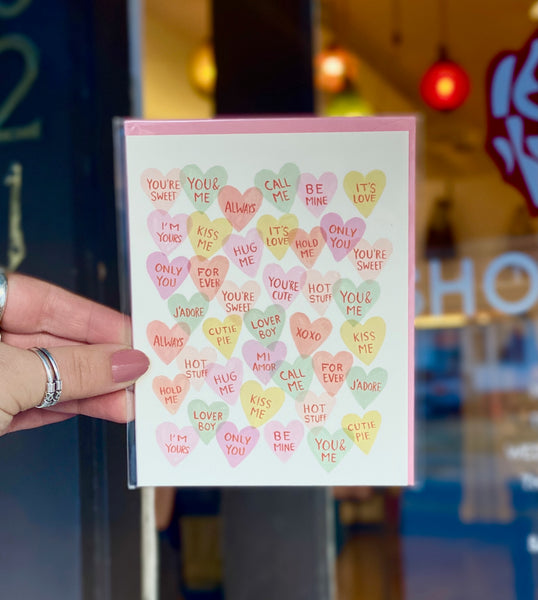 2
YOU'RE SWEET
YOU & ME
ALWAYS
CALL ME
BE MINE
IT'S LOVE
I'M YOURS
KISS ME
HUG ME
IT'S LOVE
HOLD ME
ONLY YOU
YOU'RE SWEET
ONLY YOU
FOR EVER
YOU'RE SWEET
YOU'RE CUTE
HOT STUFF
YOU & ME
J'ADORE
CUTIE PIE
LOVER BOY
XOXO
KISS ME
ALWAYS
HOT STUFF
HUG ME
MI AMOR
CALL ME
FOR EVER
J'ADORE
HOLD ME
LOVER BOY
KISS ME
HOT STUFF
CUTIE PIE
I'M YOURS
ONLY YOU
BE MINE
YOU & ME
SHO